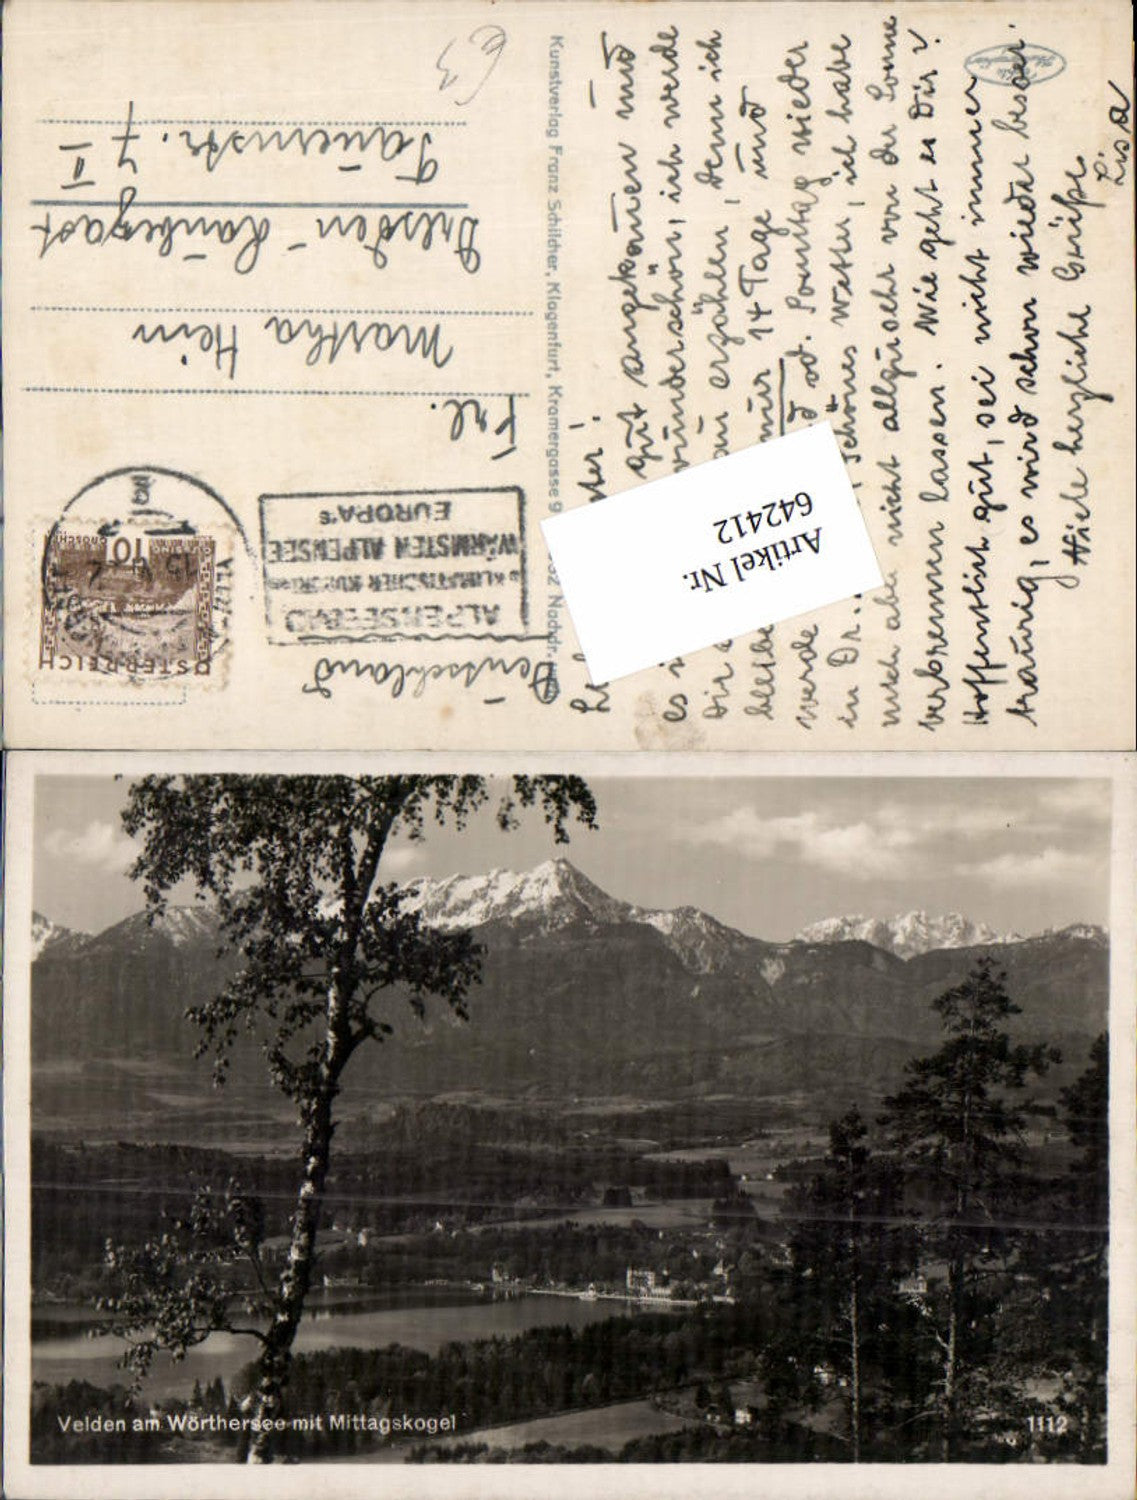 Frl.
Martha Hein
Dresden-Laubegast
Tauernstr. 7 II
Deutschland
ÖSTERREICH
10
GROSCHEN
ALPENSEEBAD
WÄRMSTEN ALPENSEE
EUROPA's
Kunstverlag Franz Schilcher, Klagenfurt, Kramergasse 9
Artikel Nr.
642412
gut angekommen und
wunderschön, ich werde
Dir erzählen, denn ich
nur 14 Tage und
werde od. Sonntag wieder
in Dr. schönes Wetter, ich habe
mich aber nicht allzusehr von der Sonne
verbrennen lassen. Wie geht es Dir?
Hoffentlich gut, sei nicht immer
traurig, es wird schon wieder besser.
Viele herzliche Grüße
Lisa
Velden am Wörthersee mit Mittagskogel
1112